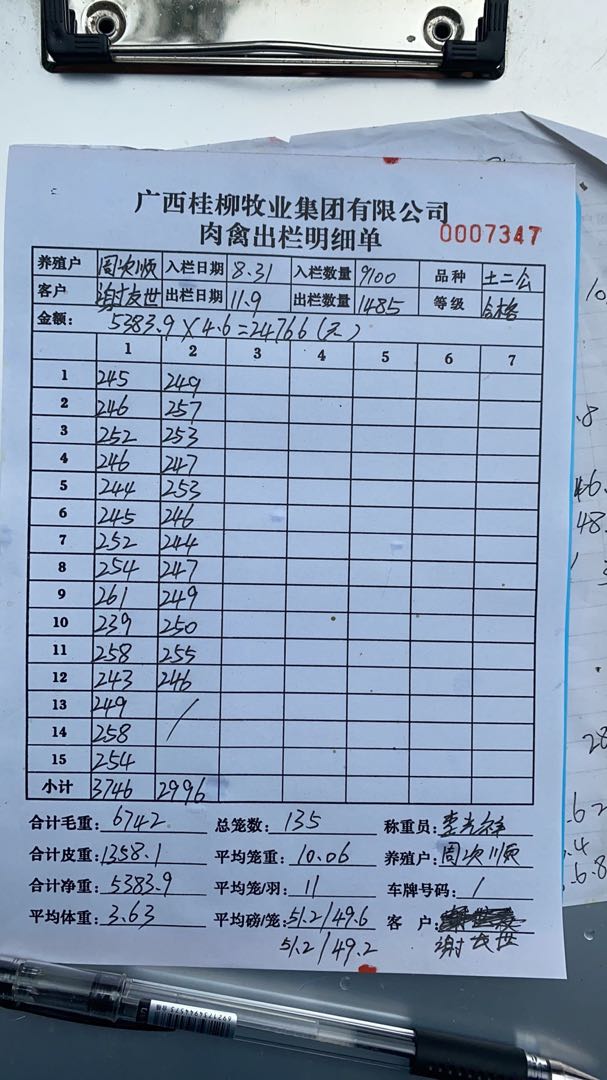 广西桂柳牧业集团有限公司
肉禽出栏明细单 0007347
养殖户 周次顺 入栏日期 8.31 入栏数量 9100 品种 土二公
客户 谢友世 出栏日期 11.9 出栏数量 1485 等级 合格
金额: 5383.9×4.6=24766(元)
1 2 3 4 5 6 7
1 245 249
2 246 257
3 252 253
4 246 247
5 244 253
6 245 246
7 252 244
8 254 247
9 261 249
10 239 250
11 258 255
12 243 246
13 249 /
14 258
15 254
小计 3746 2996
合计毛重: 6742 总笼数: 135 称重员:
合计皮重: 1358.1 平均笼重: 10.06 养殖户: 周次顺
合计净重: 5383.9 平均笼/羽: 11 车牌号码: /
平均体重: 3.63 平均磅/笼: 51.2/49.6 客 户:
51.2/49.2 谢友世
6921734944573